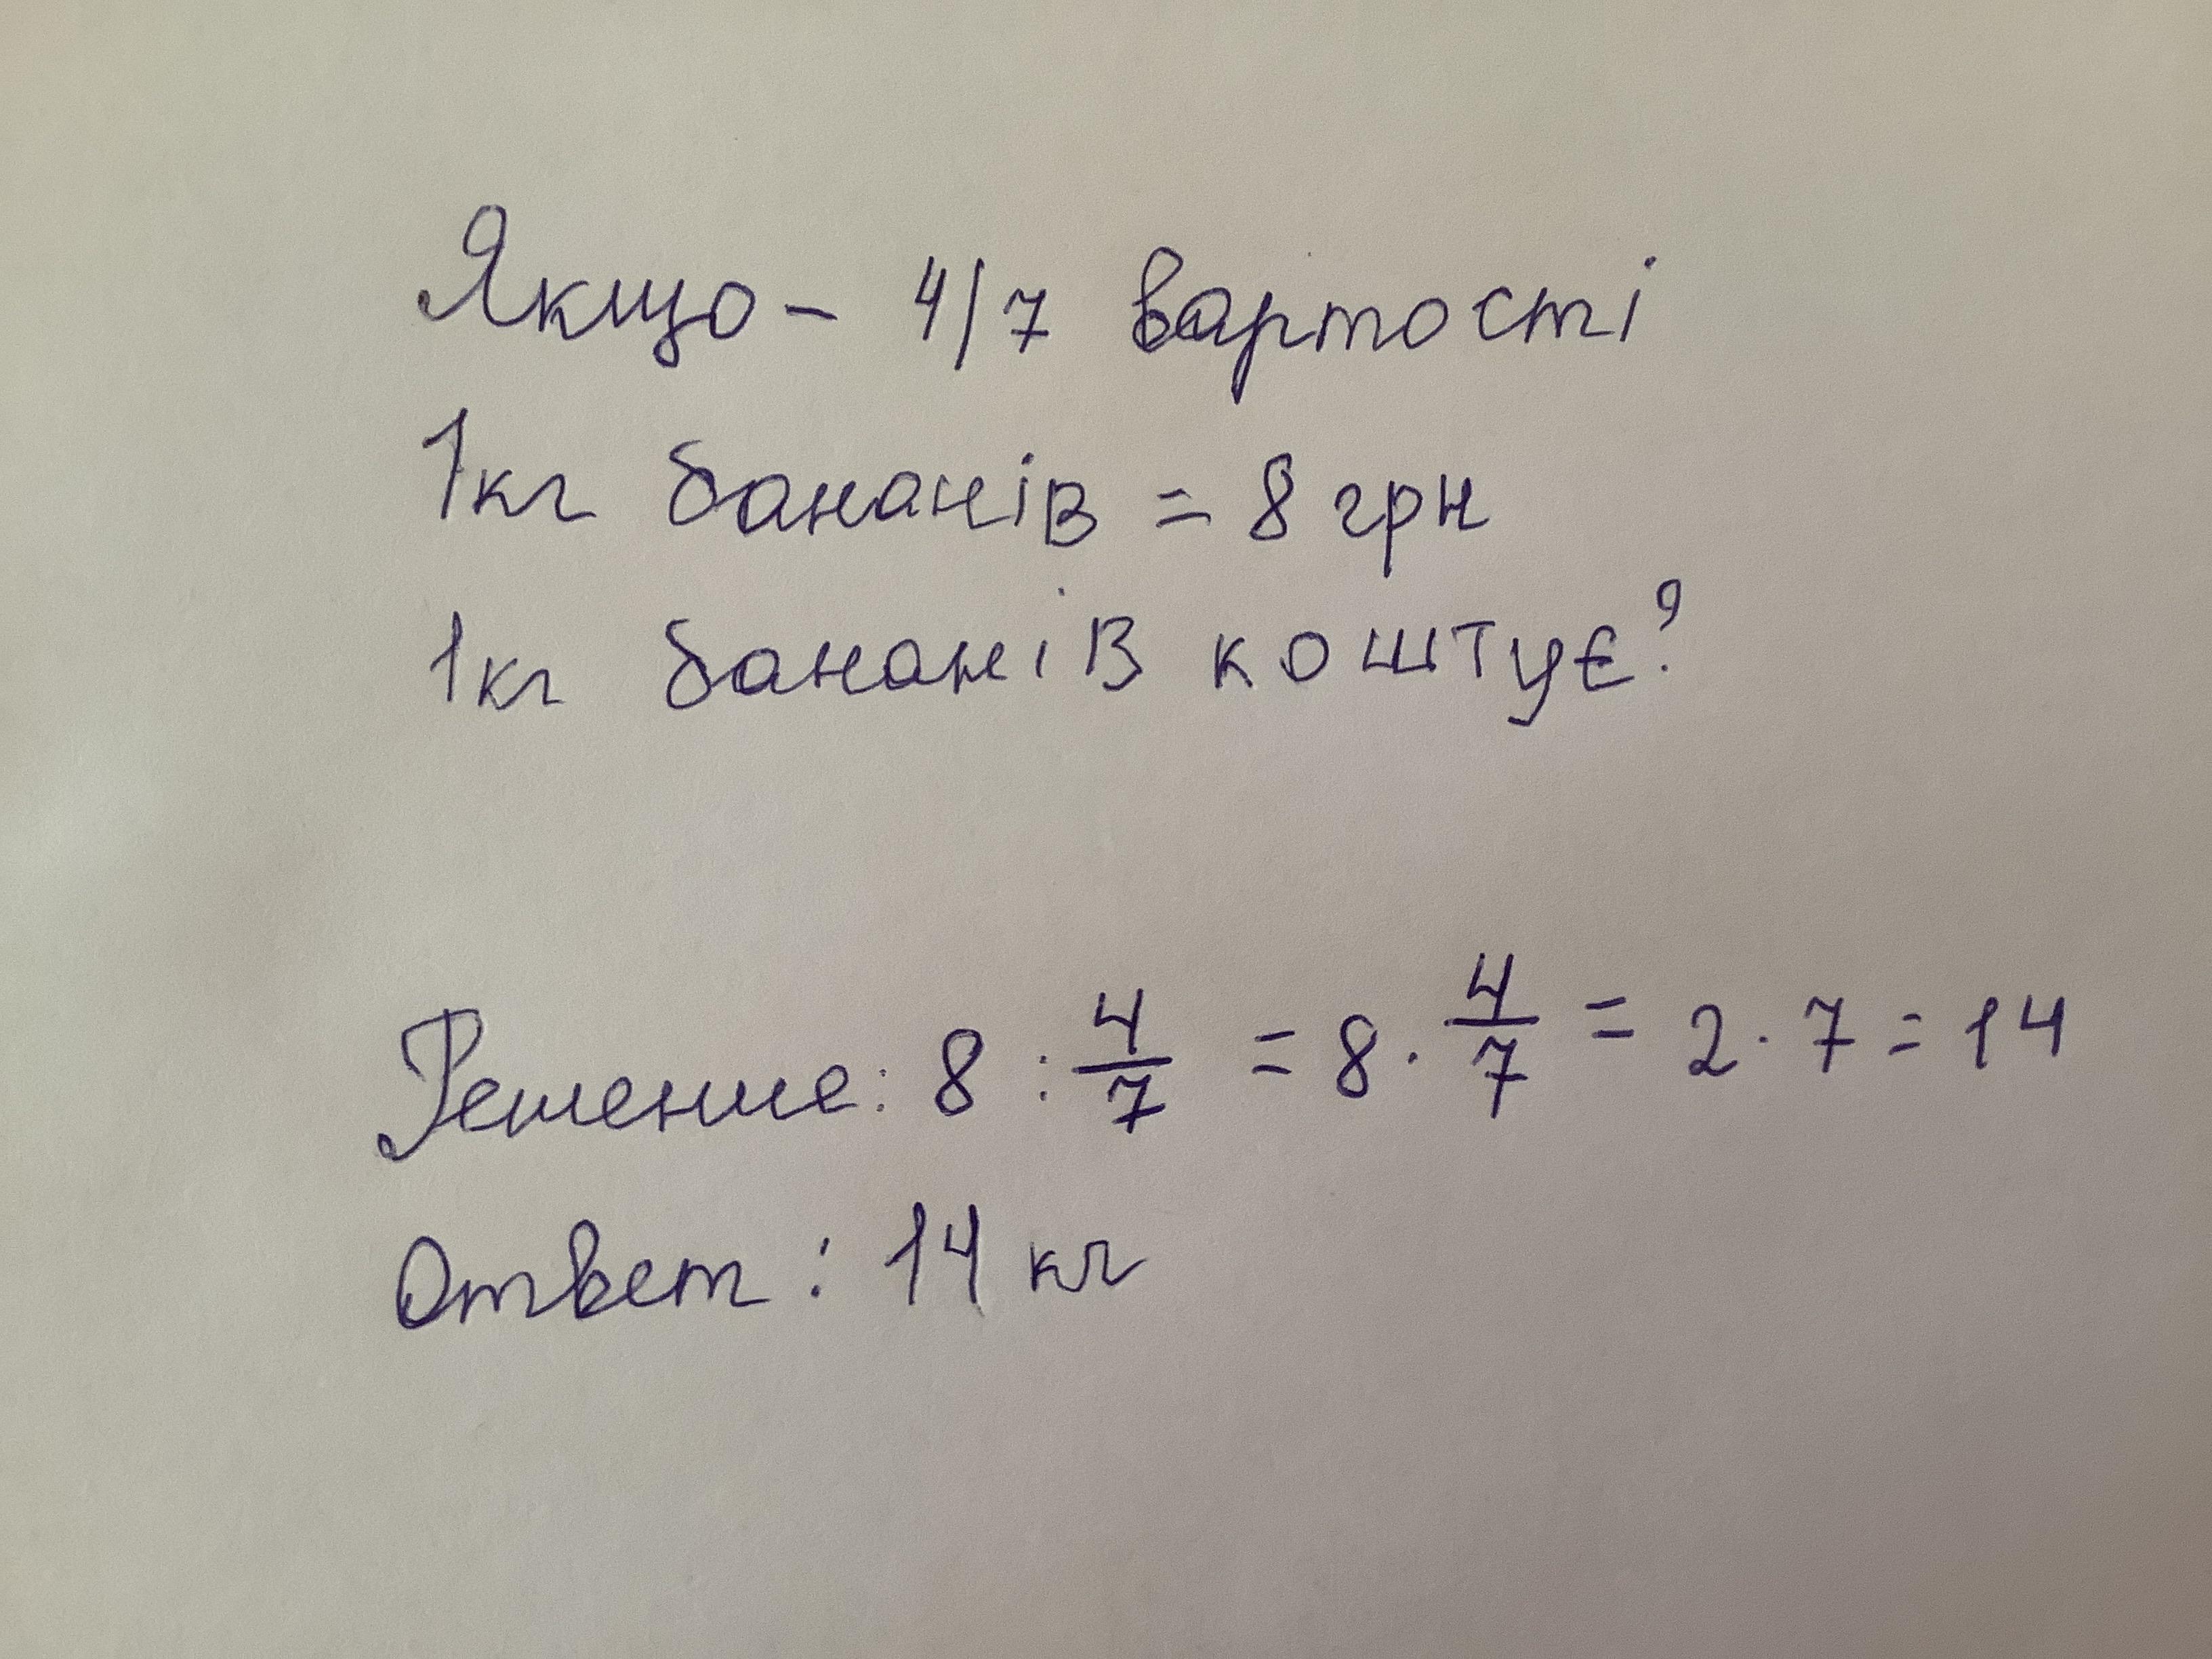 Якщо - 4/7 вартості
1кг бананів = 8 грн
1кг бананів коштує?
Решение: 8 : 4/7 = 8 · 4/7 = 2 · 7 = 14
Ответ: 14 кг